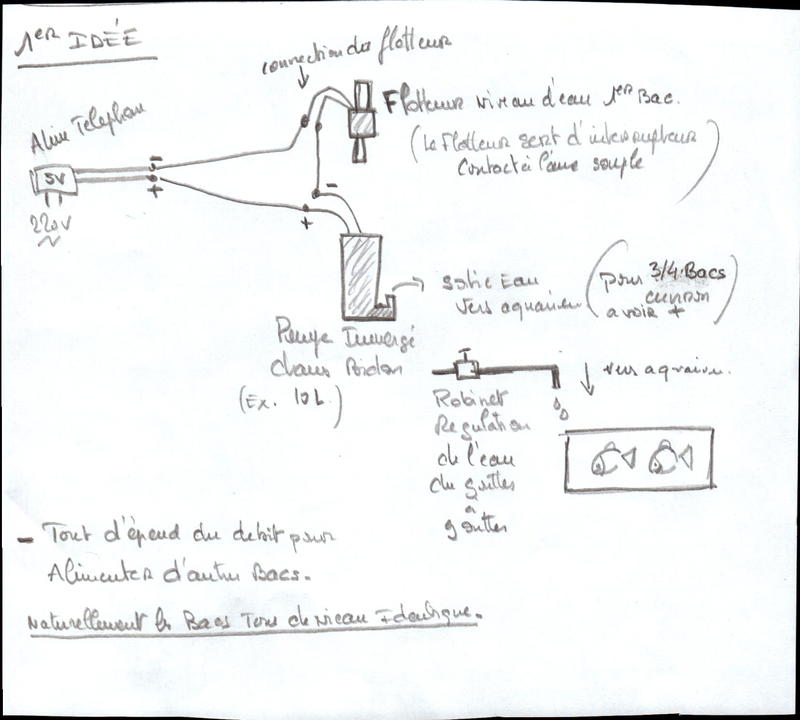 1ER IDÉE
connection du flotteur
Alim Telephon
5V
220V
-
+
Flotteur Niveau d'eau 1er Bac.
(Le Flotteur sert d'interrupteur
Contact à lame souple)
-
+
Sortie Eau
Vers aquarium
(pour 3/4 Bacs
environ
a voir +)
Pompe Immergé
dans Bidon
(Ex. 10 L.)
Robinet
Regulation
de l'eau
du gouttes
a
gouttes
vers aquarium.
- Tout d'épend du debit pour
Alimenter d'autres Bacs.
Naturellement les Bacs Tous de Niveau Identique.